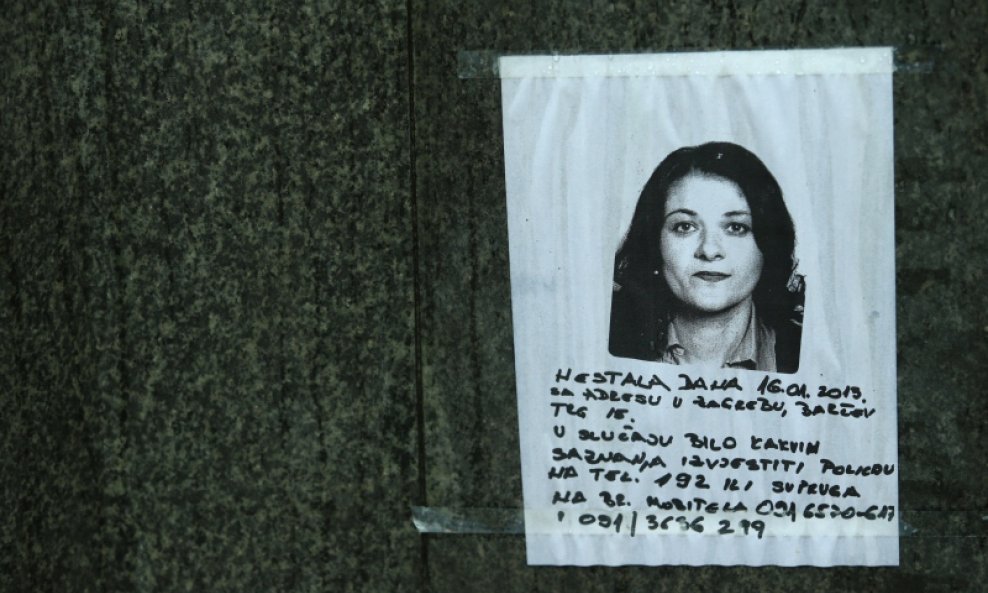 NESTALA DANA 16.01.2013.
SA ADRESU U ZAGREBU, BARČEV
TRG 15.
U SLUČAJU BILO KAKVIH
SAZNANJA IZVJESTITI POLICIJU
NA TEL. 192 ILI SUPRUGA
NA BR. MOBITELA 091/6570-617
I 091/3636 299